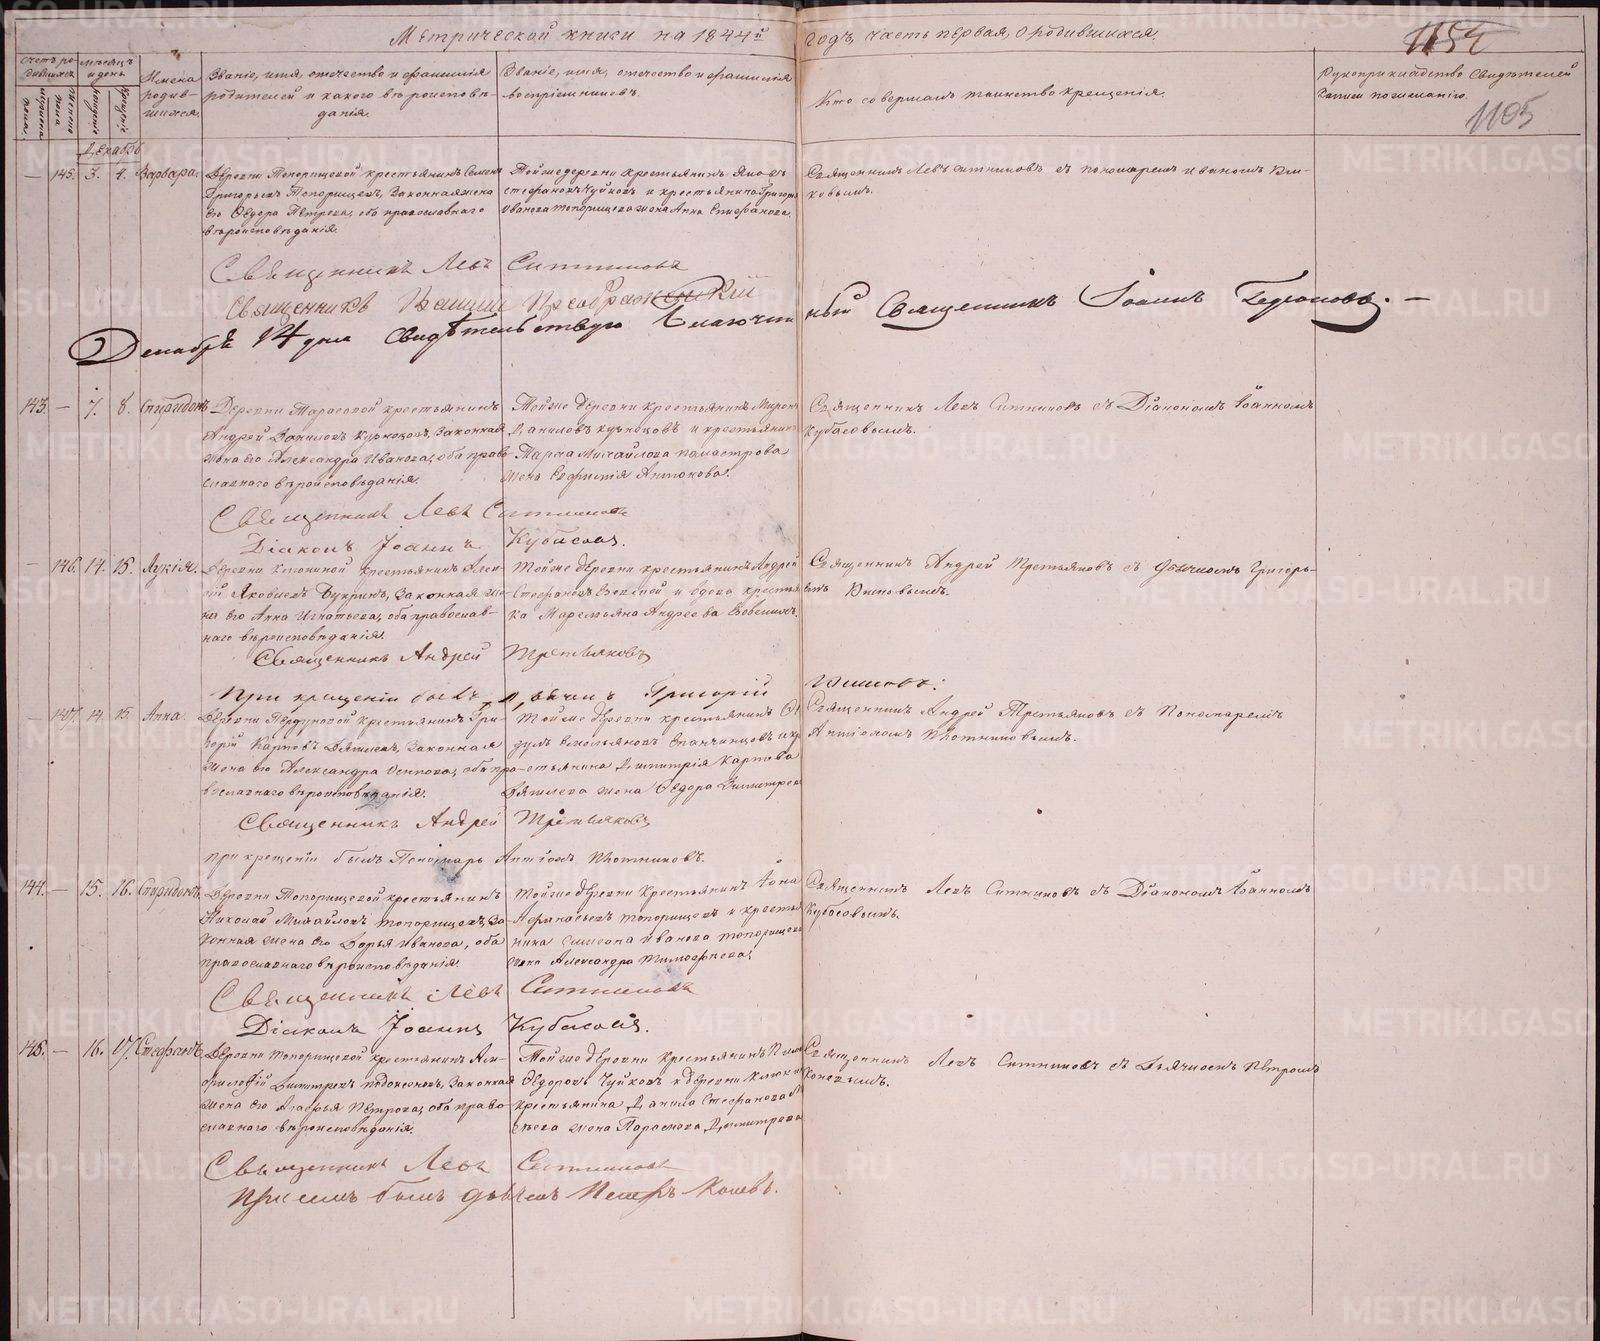 Метрической книги на 1844й годъ, часть первая, о родившихся.
1154
1105
Счетъ родившихся
мужеска пола.
женска пола
Мѣсяцъ и день
рожденіе
крещеніе
Имена родившихся.
Званіе, имя, отчество и фамилія
родителей и какого вѣроисповѣ-
данія.
Званіе, имя, отчество и фамилія
воспріемниковъ.
Кто совершалъ таинство крещенія.
Рукоприкладство свидѣтелей
записи по желанію.
Декабрь
— 145. 3. 4. Варвара.
Деревни Топорищевой крестьянинъ Семенъ
Григорьевъ Топорищевъ, законная жена
его Ѳедора Петрова, оба православнаго
вѣроисповѣданія.
Той же деревни крестьянинъ Яковъ
Стефановъ Чуйковъ и крестьянина Григорья
Иванова Топорищева жена Анна Епифанова.
Священникъ Левъ Ситниковъ съ пономаремъ Иваномъ
Священникъ Левъ Ситниковъ
Священникъ Преображенскій
Декабря 14 дня свидѣтельствую Благочинный Священникъ Іоаннъ
143. — 7. 8. Спиридонъ
Деревни Тарасовой крестьянинъ
Андрей Даниловъ Кузнецовъ, законная
жена его Александра Иванова, оба право-
славнаго вѣроисповѣданія.
Той же деревни крестьянинъ Миронъ
Даниловъ Кузнецовъ и крестьянина
Тараса Михайлова
жена Евфимія Антонова.
Священникъ Левъ Ситниковъ съ Діакономъ Іоанномъ
Кубасовымъ.
Священникъ Левъ Ситниковъ
Діаконъ Іоаннъ Кубасовъ.
— 146. 14. 15. Лукія.
Деревни Клюкиной крестьянинъ Алек-
сѣй Яковлевъ Букринъ, законная же-
на его Анна Игнатьева, оба православ-
наго вѣроисповѣданія.
Той же деревни крестьянинъ Андрей
Стефановъ и вдова крестьян-
ка Маремьяна Андреева
Священникъ Андрей Третьяковъ съ дьячкомъ Григорь-
емъ
Священникъ Андрей Третьяковъ
При крещеніи былъ дьячекъ Григорій
— 147. 14. 15. Анна.
Деревни крестьянинъ Гри-
горій Карповъ законная
жена его Александра Осипова, оба пра-
вославнаго вѣроисповѣданія.
Той же деревни крестьянинъ
Емельяновъ Епанчинцовъ и кр-
естьянина Димитрія Карпова
жена Ѳедора Димитрева
Священникъ Андрей Третьяковъ съ Пономаремъ
Плотниковымъ.
Священникъ Андрей Третьяковъ
при крещеніи былъ Пономарь Плотниковъ.
144. — 15. 16. Спиридонъ,
Деревни Топорищевой крестьянинъ
Николай Михайловъ Топорищевъ, за-
конная жена его Дарья Иванова, оба
православнаго вѣроисповѣданія.
Той же деревни крестьянинъ Іона
Афанасьевъ Топорищевъ и крестья-
нина Симеона Иванова Топорищева
жена Александра Тимофѣева.
Священникъ Левъ Ситниковъ съ Діакономъ Іоанномъ
Кубасовымъ.
Священникъ Левъ Ситниковъ
Діаконъ Іоаннъ Кубасовъ.
145. — 16. 17. Стефанъ,
Деревни Топорищевой крестьянинъ Ам-
филофій Димитревъ законная
жена его Агафья Петрова, оба право-
славнаго вѣроисповѣданія.
Той же деревни крестьянинъ
Ѳедоровъ Чуйковъ и деревни Клюкиной
крестьянина Данила Стефанова
жена Параскева Димитрева
Священникъ Левъ Ситниковъ съ Дьячкомъ Петромъ
Коневымъ.
Священникъ Левъ Ситниковъ
При семъ былъ дьячекъ Петръ Коневъ.
METRIKI.GASO-URAL.RU